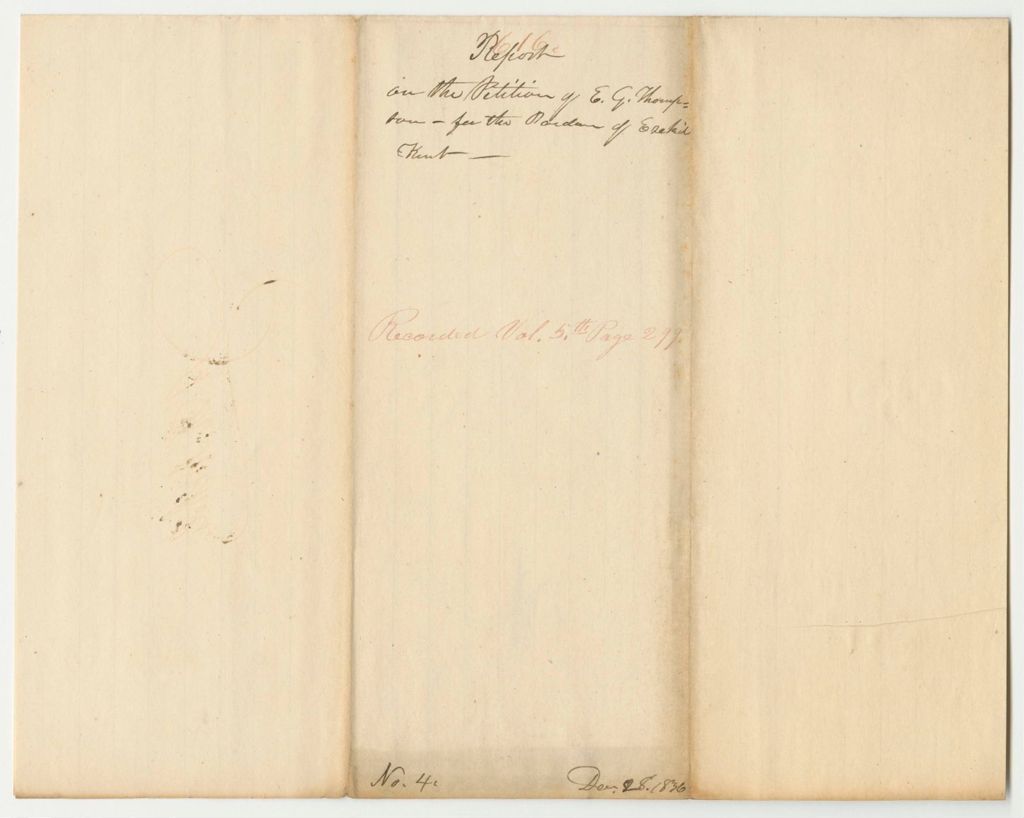 616.
Report
on the Petition of E. G. Thomp=
son – for the Pardon of Ezekiel
Kent —
Recorded Vol. 5.th Page 299.
No. 4.
Dec. 28. 1836